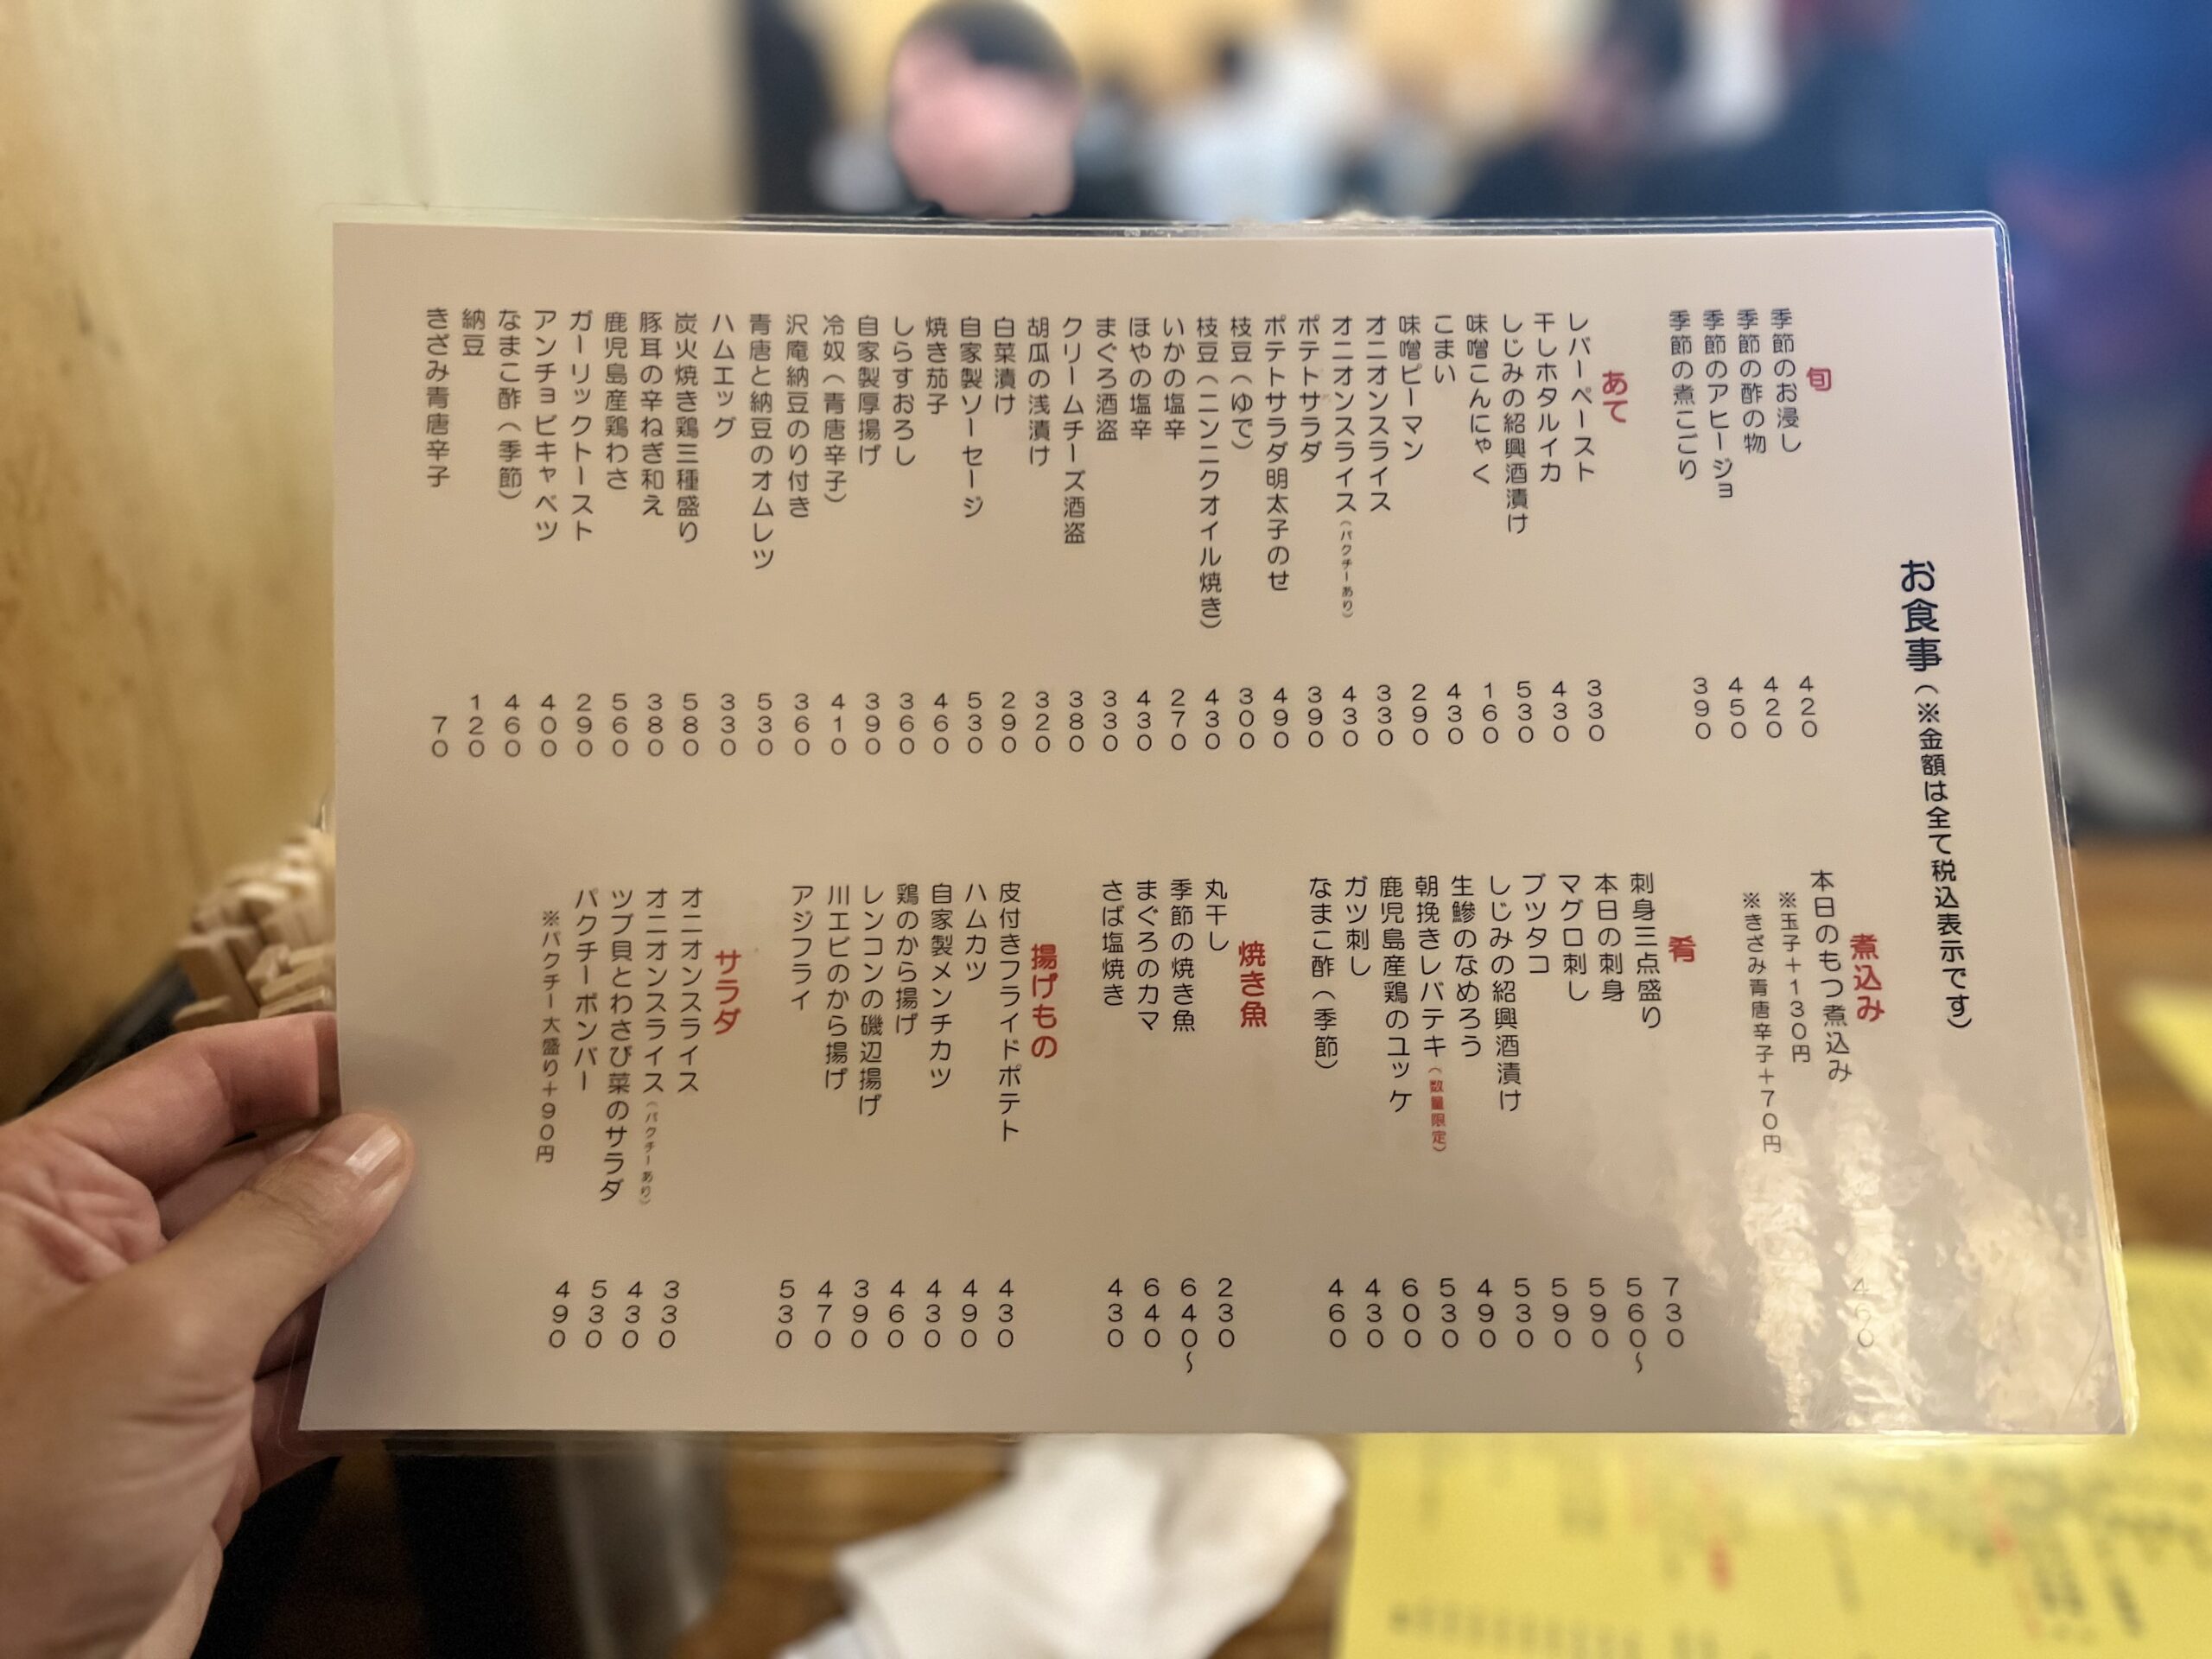 お食事（※金額は全て税込表示です）
旬
季節のお浸し 420
季節の酢の物 420
季節のアヒージョ 450
季節の煮こごり 390
あて
レバーペースト 330
干しホタルイカ 430
しじみの紹興酒漬け 530
味噌こんにゃく 160
こまい 430
味噌ピーマン 290
オニオンスライス 330
オニオンスライス（パクチーあり） 430
ポテトサラダ 390
ポテトサラダ明太子のせ 490
枝豆（ゆで） 300
枝豆（ニンニクオイル焼き） 430
いかの塩辛 270
ほやの塩辛 430
まぐろ酒盗 330
クリームチーズ酒盗 380
胡瓜の浅漬け 320
白菜漬け 290
自家製ソーセージ 530
焼き茄子 460
しらすおろし 360
自家製厚揚げ 390
冷奴（青唐辛子） 410
沢庵納豆のり付き 360
青唐と納豆のオムレツ 530
ハムエッグ 330
炭火焼き鶏三種盛り 580
豚耳の辛ねぎ和え 380
鹿児島産鶏わさ 560
ガーリックトースト 290
アンチョビキャベツ 400
なまこ酢（季節） 460
納豆 120
きざみ青唐辛子 70
煮込み
本日のもつ煮込み 460
※玉子＋130円
※きざみ青唐辛子＋70円
肴
刺身三点盛り 730
本日の刺身 560～
マグロ刺し 590
ブツタコ 590
しじみの紹興酒漬け 530
生鰺のなめろう 490
朝挽きレバテキ（数量限定） 530
鹿児島産鶏のユッケ 600
ガツ刺し 430
なまこ酢（季節） 460
焼き魚
丸干し 230
季節の焼き魚 640～
まぐろのカマ 640
さば塩焼き 430
揚げもの
皮付きフライドポテト 430
ハムカツ 490
自家製メンチカツ 430
鶏のから揚げ 460
レンコンの磯辺揚げ 390
川エビのから揚げ 470
アジフライ 530
サラダ
オニオンスライス 330
オニオンスライス（パクチーあり） 430
ツブ貝とわさび菜のサラダ 530
パクチーボンバー 490
※パクチー大盛り＋90円